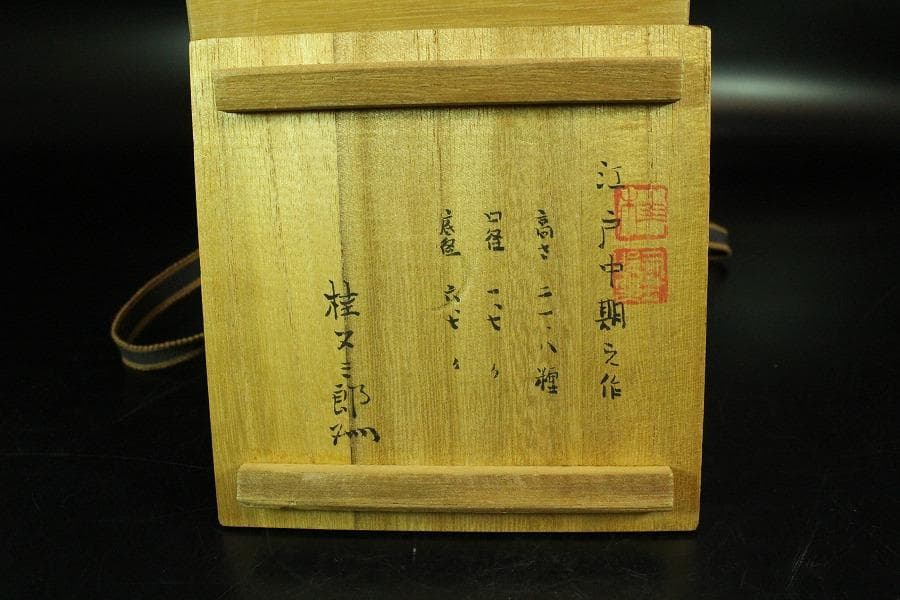 江戸中期之作
高さ 二一、八糎
口径 一、七〃
底径 六、七〃
桂又三郎